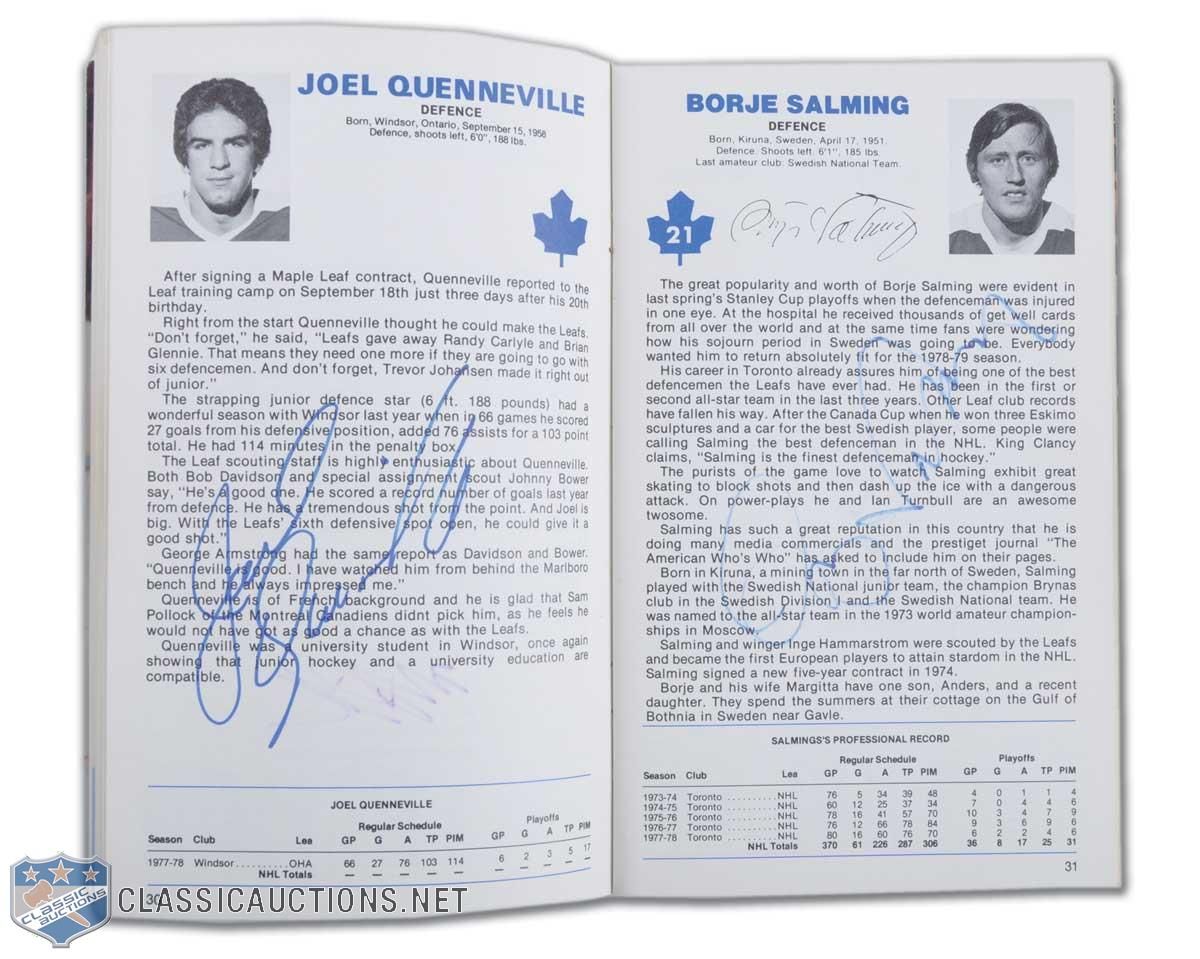 JOEL QUENNEVILLE
DEFENCE
Born, Windsor, Ontario, September 15, 1958
Defence, shoots left, 6'0", 188 lbs.
After signing a Maple Leaf contract, Quenneville reported to the
Leaf training camp on September 18th just three days after his 20th
birthday.
Right from the start Quenneville thought he could make the Leafs.
"Don't forget," he said, "Leafs gave away Randy Carlyle and Brian
Glennie. That means they need one more if they are going to go with
six defencemen. And don't forget, Trevor Johansen made it right out
of junior."
The strapping junior defence star (6 ft. 188 pounds) had a
wonderful season with Windsor last year when in 66 games he scored
27 goals from his defensive position, added 76 assists for a 103 point
total. He had 114 minutes in the penalty box.
The Leaf scouting staff is highly enthusiastic about Quenneville.
Both Bob Davidson and special assignment scout Johnny Bower
say, "He's a good one. He scored a record number of goals last year
from defence. He has a tremendous shot from the point. And Joel is
big. With the Leafs' sixth defensive spot open, he could give it a
good shot."
George Armstrong had the same report as Davidson and Bower.
"Quenneville is good. I have watched him from behind the Marlboro
bench and he always impressed me."
Quenneville is of French background and he is glad that Sam
Pollock of the Montreal Canadiens didnt pick him, as he feels he
would not have got as good a chance as with the Leafs.
Quenneville was a university student in Windsor, once again
showing that junior hockey and a university education are
compatible.
JOEL QUENNEVILLE
Regular Schedule Playoffs
Season Club Lea GP G A TP PIM GP G A TP PIM
1977-78 Windsor..........OHA 66 27 76 103 114 6 2 3 5 17
NHL Totals — — — — — — — — — —
30
BORJE SALMING
DEFENCE
Born, Kiruna, Sweden, April 17, 1951.
Defence. Shoots left. 6'1", 185 lbs.
Last amateur club: Swedish National Team.
21
Borje Salming
The great popularity and worth of Borje Salming were evident in
last spring's Stanley Cup playoffs when the defenceman was injured
in one eye. At the hospital he received thousands of get well cards
from all over the world and at the same time fans were wondering
how his sojourn period in Sweden was going to be. Everybody
wanted him to return absolutely fit for the 1978-79 season.
His career in Toronto already assures him of being one of the best
defencemen the Leafs have ever had. He has been in the first or
second all-star team in the last three years. Other Leaf club records
have fallen his way. After the Canada Cup when he won three Eskimo
sculptures and a car for the best Swedish player, some people were
calling Salming the best defenceman in the NHL. King Clancy
claims, "Salming is the finest defenceman in hockey."
The purists of the game love to watch Salming exhibit great
skating to block shots and then dash up the ice with a dangerous
attack. On power-plays he and Ian Turnbull are an awesome
twosome.
Salming has such a great reputation in this country that he is
doing many media commercials and the prestiget journal "The
American Who's Who" has asked to include him on their pages.
Born in Kiruna, a mining town in the far north of Sweden, Salming
played with the Swedish National junior team, the champion Brynas
club in the Swedish Division I and the Swedish National team. He
was named to the all-star team in the 1973 world amateur champion-
ships in Moscow.
Salming and winger Inge Hammarstrom were scouted by the Leafs
and became the first European players to attain stardom in the NHL.
Salming signed a new five-year contract in 1974.
Borje and his wife Margitta have one son, Anders, and a recent
daughter. They spend the summers at their cottage on the Gulf of
Bothnia in Sweden near Gavle.
SALMINGS'S PROFESSIONAL RECORD
Regular Schedule Playoffs
Season Club Lea GP G A TP PIM GP G A TP PIM
1973-74 Toronto ..........NHL 76 5 34 39 48 4 0 1 1 4
1974-75 Toronto ..........NHL 60 12 25 37 34 7 0 4 4 6
1975-76 Toronto ..........NHL 78 16 41 57 70 10 3 4 7 9
1976-77 Toronto ..........NHL 76 12 66 78 84 9 3 6 9 6
1977-78 Toronto ..........NHL 80 16 60 76 70 6 2 2 4 6
NHL Totals 370 61 226 287 306 36 8 17 25 31
31
CLASSIC AUCTIONS
CLASSICAUCTIONS.NET